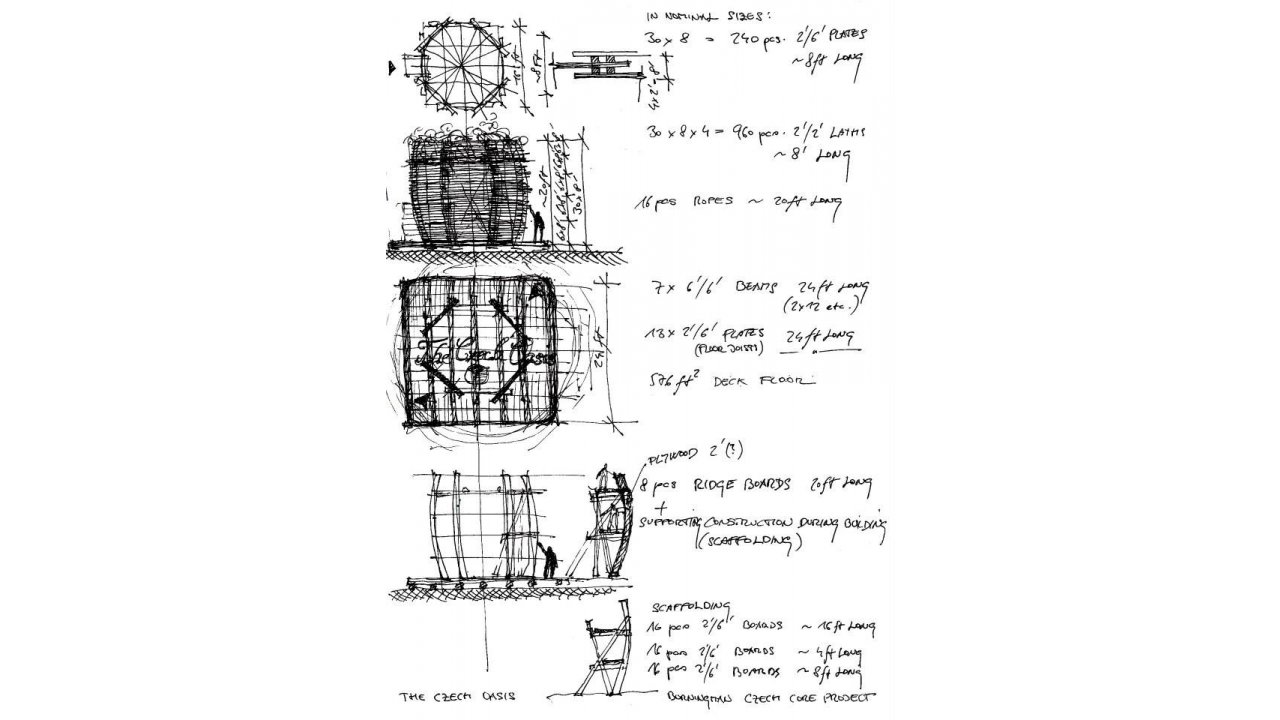 IN NOMINAL SIZES:
30 x 8 = 240 pcs. 2'/6' PLATES
~ 8ft LONG
16 ft
~8ft
4x2'=8'
30 x 8 x 4 = 960 pcs. 2'/2' LATHS
~ 8' LONG
~20ft
30x8'
16 pcs ROPES ~ 20ft LONG
7 x 6'/6' BEAMS 24ft LONG
(2x12 etc.)
13 x 2'/6' PLATES 24ft LONG
(FLOOR JOISTS)
24ft
The Czech Oasis
576 ft² DECK FLOOR
PLYWOOD 2'(?)
8 pcs RIDGE BOARDS 20ft LONG
+
SUPPORTING CONSTRUCTION DURING BUILDING
(SCAFFOLDING)
SCAFFOLDING
16 pcs 2'/6' BOARDS ~ 16ft LONG
16 pcs 2'/6' BOARDS ~ 4ft LONG
16 pcs 2'/6' BOARDS ~ 8ft LONG
THE CZECH OASIS
BURNINGMAN CZECH CORE PROJECT